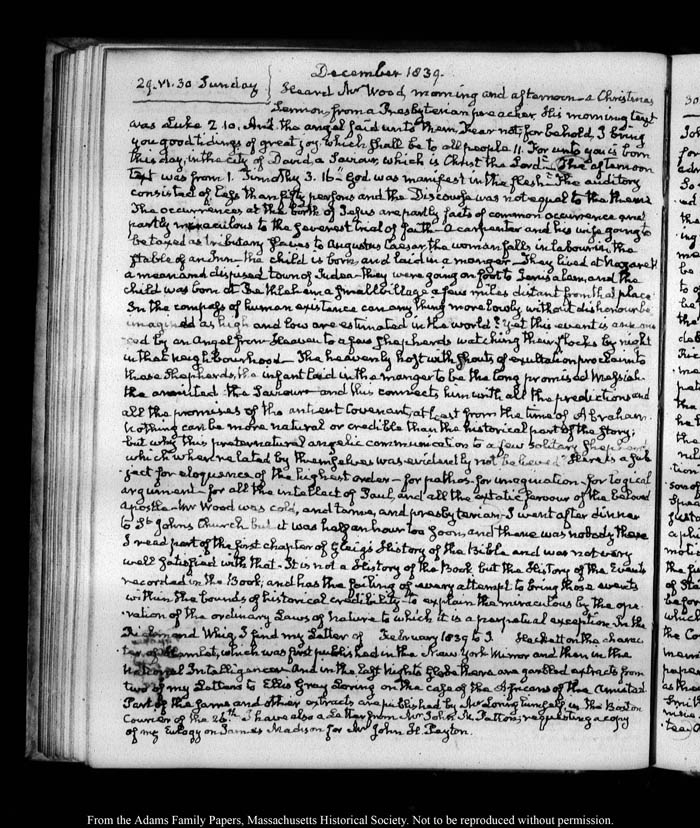 December 1839.
29. VI. 30 Sunday
Heard Mr Wood, morning and afternoon—a Christmas
Sermon from a Presbyterian preacher. His morning text
was Luke 2. 10. And the angel said unto them, Fear not; for behold, I bring
you good tidings of great joy, which shall be to all people. 11. For unto you is born
this day, in the city of David, a Saviour, which is Christ the Lord—The afternoon
text was from 1. Timothy 3. 16—God was manifest in the flesh—The auditory
consisted of less than fifty persons and the Discourse was not equal to the theme
The occurrences at the birth of Jesus are partly facts of common occurrence and
partly miraculous to the severest trial of faith—A carpenter and his wife going to
be taxed as tributary slaves to Augustus Caesar, the woman falls in labour in the
stable of an Inn—the child is born, and laid in a manger—They lived at Nazareth
a mean and dispised town of Judea—they were going on foot to Jerusalem, and the
child was born at Bethlehem a small village a few miles distant from that place
In the compass of human existence can any thing more lowly without dishonour be
imagined as high and low are estimated in the world? Yet this event is
ced by an Angel from Heaven to a few Shepherds watching their flocks by night
in that neighbourhood—The heavenly host with shouts of exultation proclaim to
these Shepherds, the infant laid in the manger to be the long promised Messiah
the anointed—the Saviour—and this connects him with all the predictions and
all the promises of the antient Covenant, at least from the time of Abraham.
Nothing can be more natural or credible than the historical part of the story;
but why this preternatural angelic communication to a few solitary Shepherds
which when related by themselves was evidently not believed? Here is a sub
ject for eloquence of the highest order—for pathos—for imagination—for logical
argument—for all the intellect of Paul, and all the extatic fervour of the beloved
apostle—Mr Wood was cold, and tame, and presbyterian. I went after dinner
to St. Johns Church but it was half an hour too soon, and there was nobody there
I read part of the first chapter of Gleig's History of the Bible and was not very
well satisfied with that. It is not a History of the Book but the History of the Events
recorded in the Book; and has the failing of every attempt to bring those events
within the bounds of historical credibility—to explain the miraculous by the ope
ration of the ordinary Laws of nature to which it is a perpetual exception. In the
Richmond Whig, I find my Letter of February 1839 to J. Hackett on the charac
ter of Hamlet, which was first published in the New York Mirror and then in the
National Intelligencer—And in the last Nights Globe there are garbled extracts from
two of my Letters to Ellis Gray Loring on the case of the Africans of the Amistad
Part of the same and other extracts are published by Mr Loring himself, in the Boston
Courier of the 26th. I have also a Letter from Mr John M. Patton, requesting a copy
of my Eulogy on James Madison for Mr John H. Peyton.
From the Adams Family Papers, Massachusetts Historical Society. Not to be reproduced without permission.